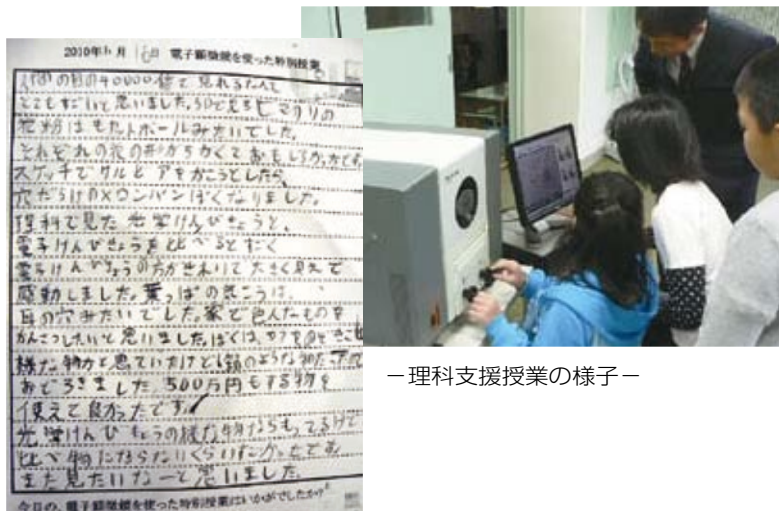 2010年11月16日 電子顕微鏡を使った特別授業
人間の目の40000倍で見れるなんて
とてもすごいと思いました。3Dで見る
花粉はもたんボールみたいでした。
それぞれの花の形がちがくておもしろかったです。
スケッチでサルビアをかこうとしたら、
穴だらけのメロンパンぽくなりました。
理科で見た光学けんびきょうと、
電子けんびきょうを比べるとすごく
電子けんびきょうの方がきれいで大きく見えて
感動しました。葉っぱの気こうは、
耳の穴みたいでした。家で色んなものを
かんさつしたいと思いました。ぼくは、
様な物かと思っていたけど鏡のような
おどろきました。500万円もする物を
使えて良かったです。
光学けんびきょうの様な物ならもってるけど
比べ物にならないくらいだったです。
また見たいなーと思いました。
今日の、電子顕微鏡を使った特別授業はいかがでしたか?
－理科支援授業の様子－